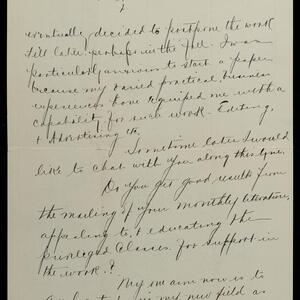 eventually, decided to postpone the work
till later, perhaps in the fall. I was
particularly anxious to start a paper
because my varied practical, business
experiences have equipped me with a
capability for such work. Editing,
+ Advertising etc.
Sometime later I would
like to chat with you along this line.
Do you get good results from
the mailing of your monthly literature,
appealing to + educating the
privileged classes for support in
the work?
My one aim now is to
in my new field as